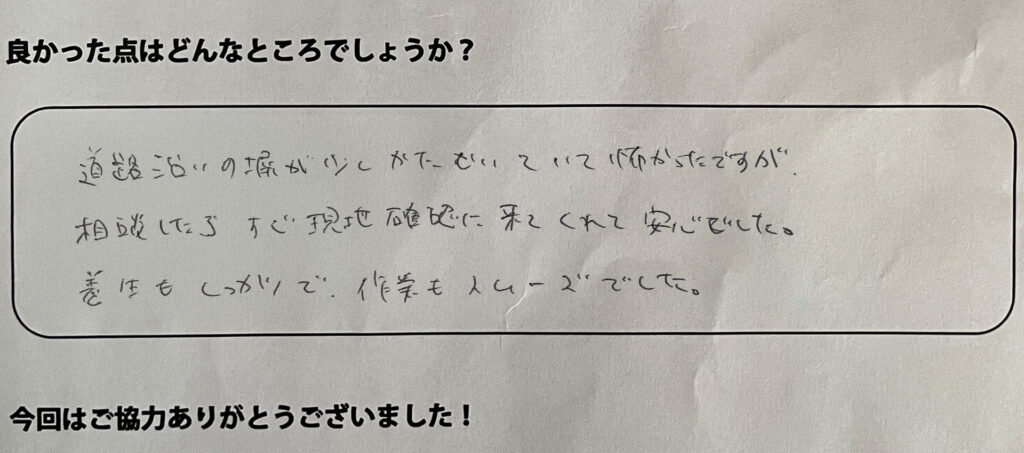 良かった点はどんなところでしょうか？
道路沿いの塀が少しかたむいていて怖かったですが、
相談したらすぐ現地確認に来てくれて安心でした。
養生もしっかりで、作業もスムーズでした。
今回はご協力ありがとうございました！